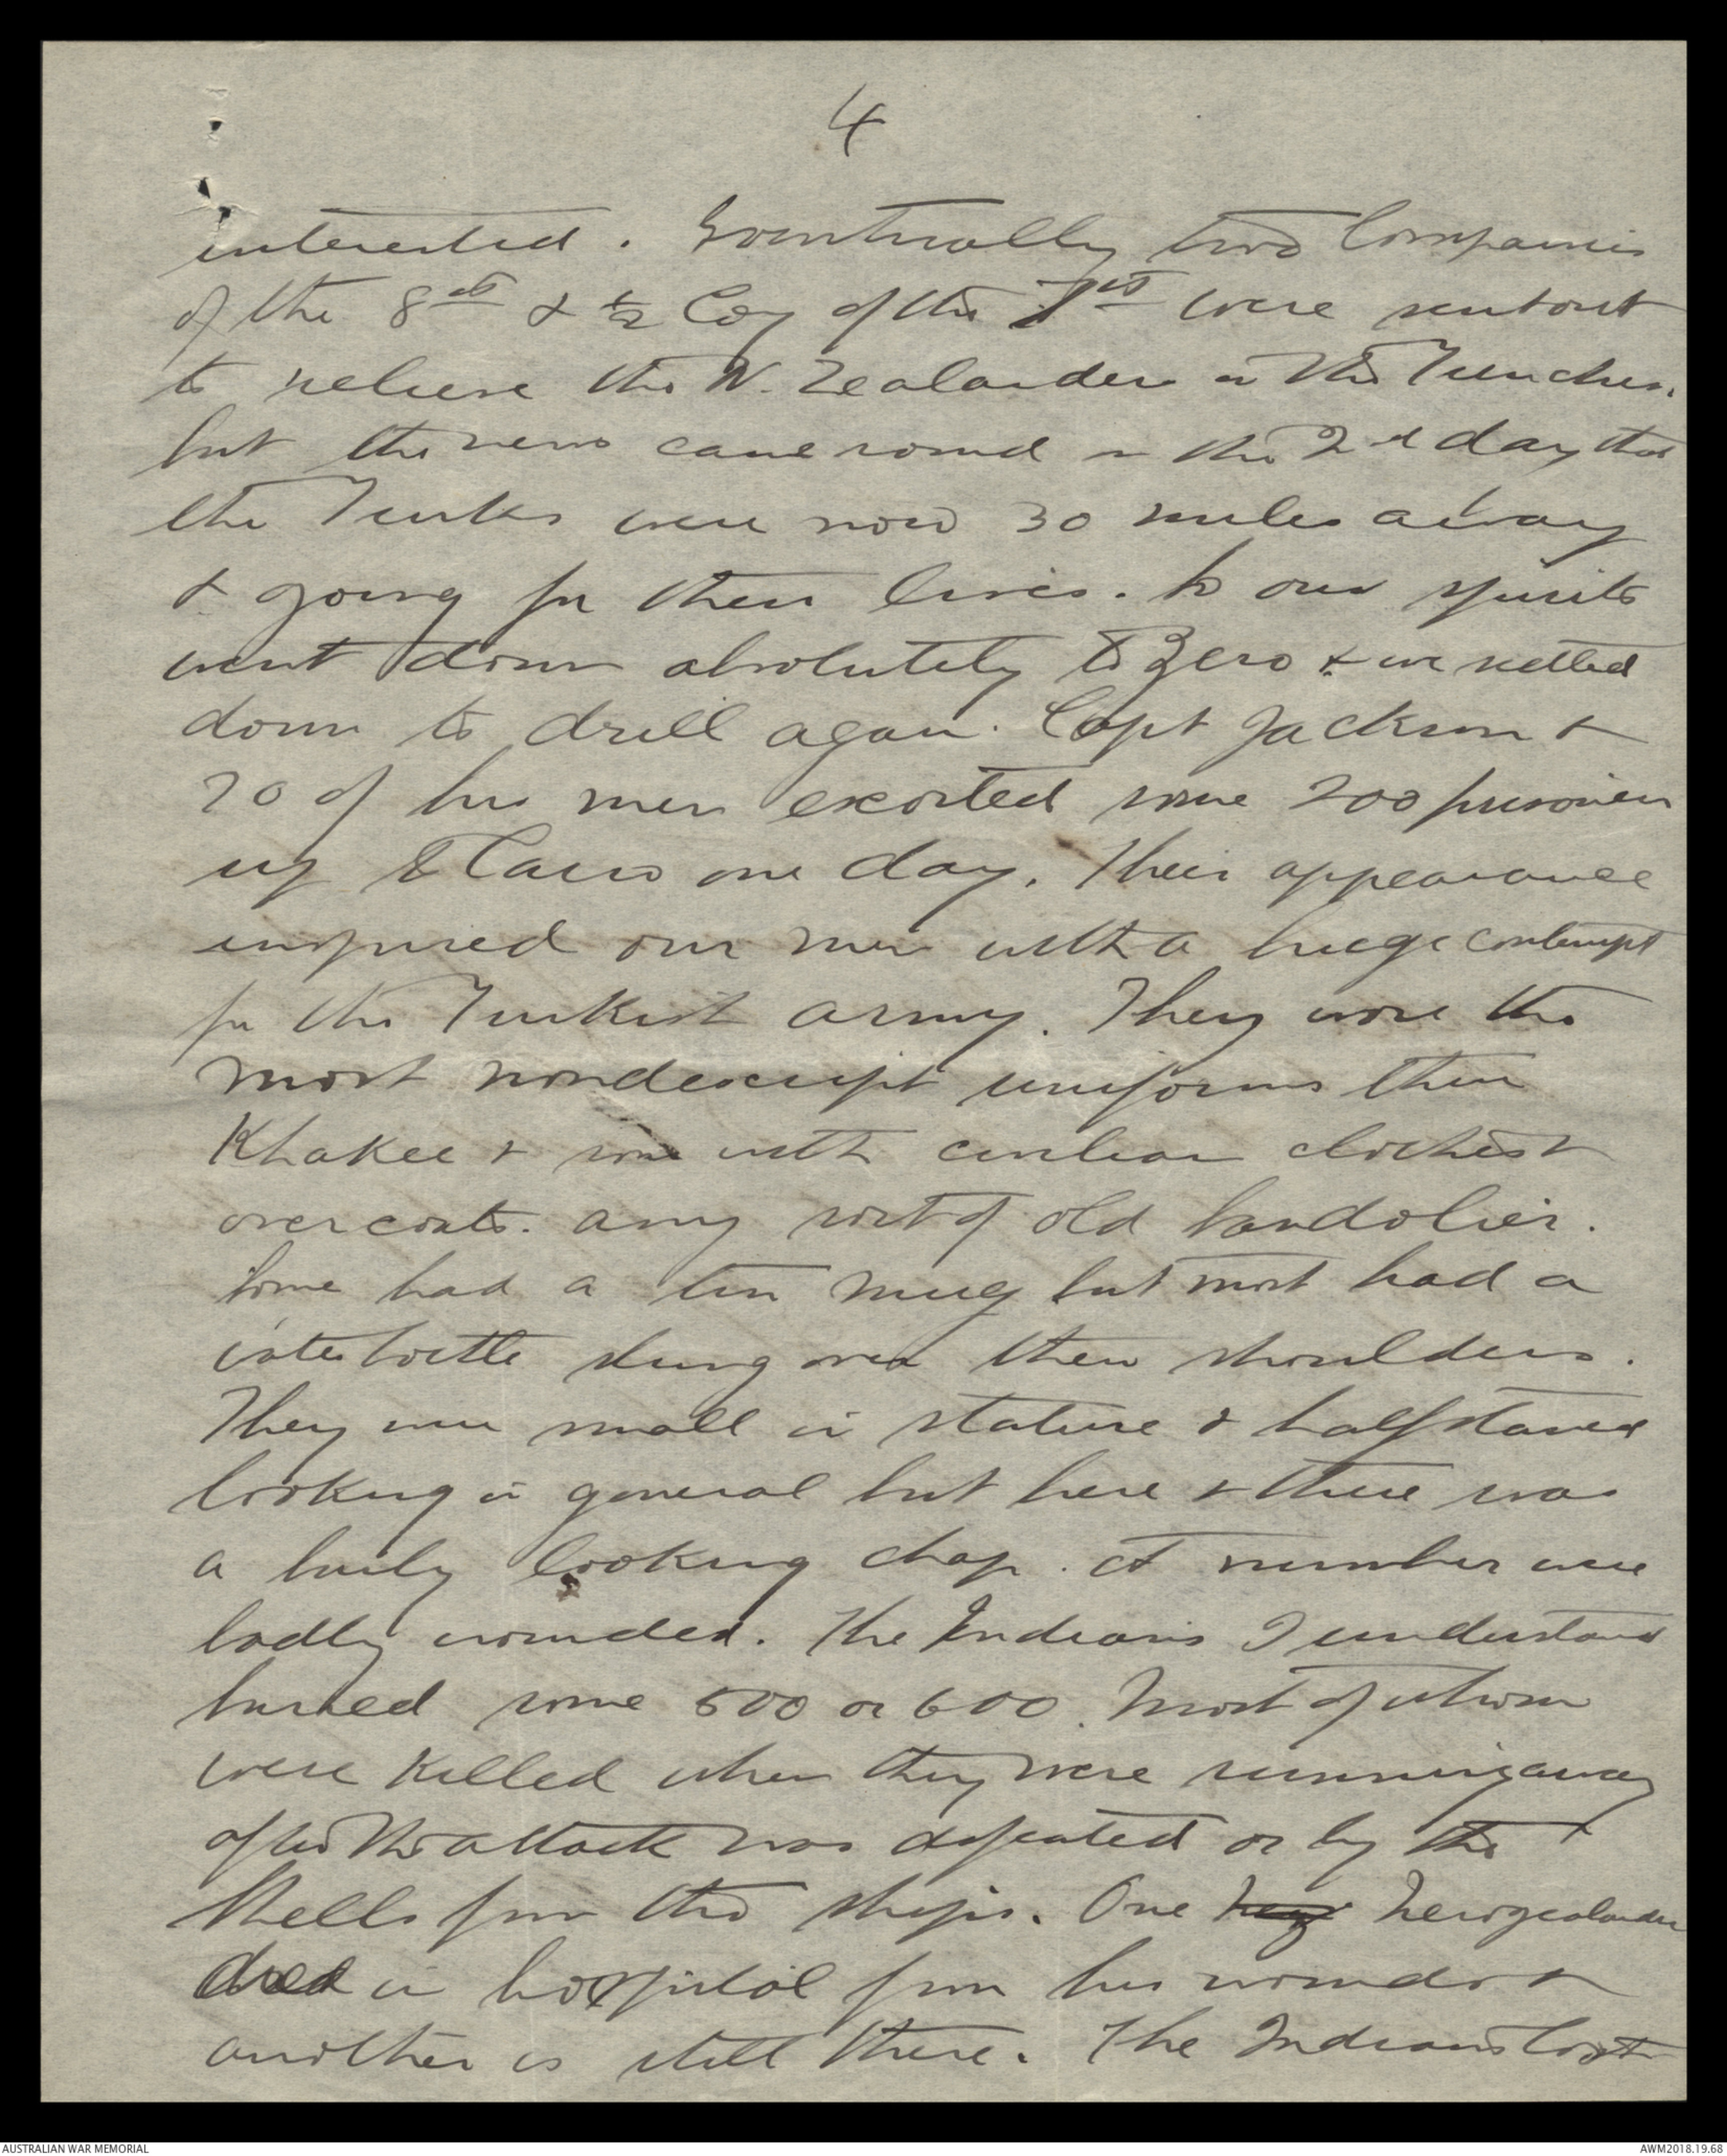 4
interested. Eventually two Companies
of the 8th & ½ Coy of the 7th were sent out
to relieve the N. Zealanders in the Trenches,
but the news came round on the 2nd day that
the Turks were now 30 miles away
& going for their lives. So our spirits
went down absolutely to Zero & we settled
down to drill again. Capt Jackson &
20 of his men escorted some 200 prisoners
up to Cairo one day. Their appearance
inspired our men with a huge contempt
for the Turkish army. They wore the
most nondescript uniforms thin
Khakee & some with civilian clothes &
overcoats. any sort of old bandolier.
Some had a tin mug but most had a
waterbottle slung over their shoulders.
They were small in stature & half starved
looking in general but here & there was
a burly looking chap. A number were
badly wounded. The Indians I understand
buried some 500 or 600. Most of whom
were killed when they were running away
after the attack was defeated or by the
Shells from the ships. One Newzealander
died in hospital from his wounds &
another is still there. The Indians lost
AUSTRALIAN WAR MEMORIAL
AWM2018.19.68